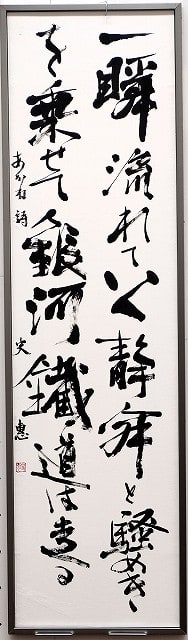 一瞬流れていく静寂と騒めき
を乗せて銀河鐵道は走る
詩 史惠